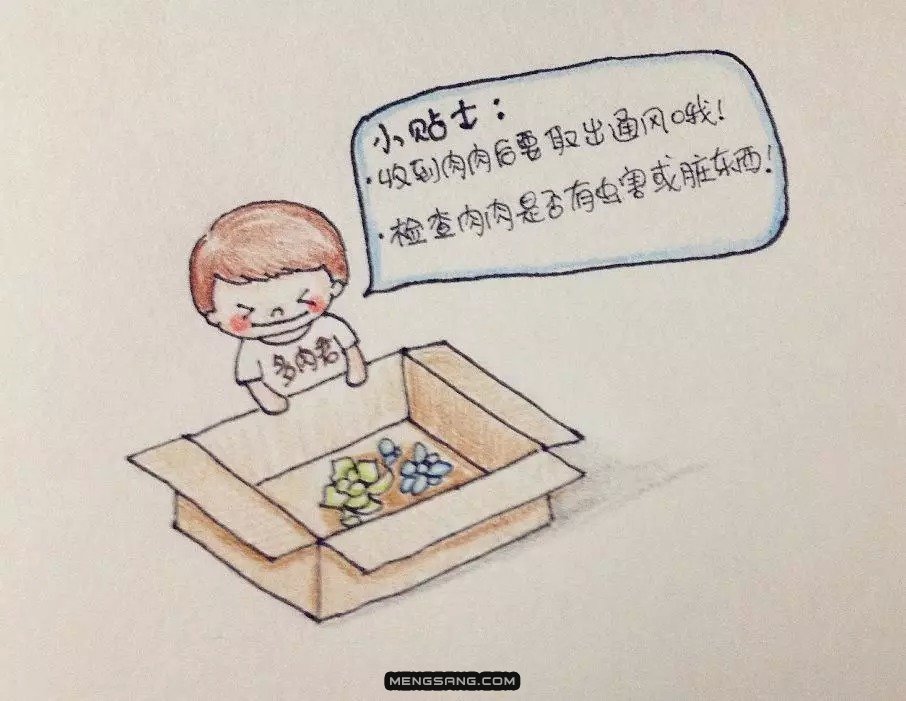 小贴士：
·收到肉肉后要取出通风哦！
·检查肉肉是否有虫害或脏东西！
多肉君
MENGSANG.COM